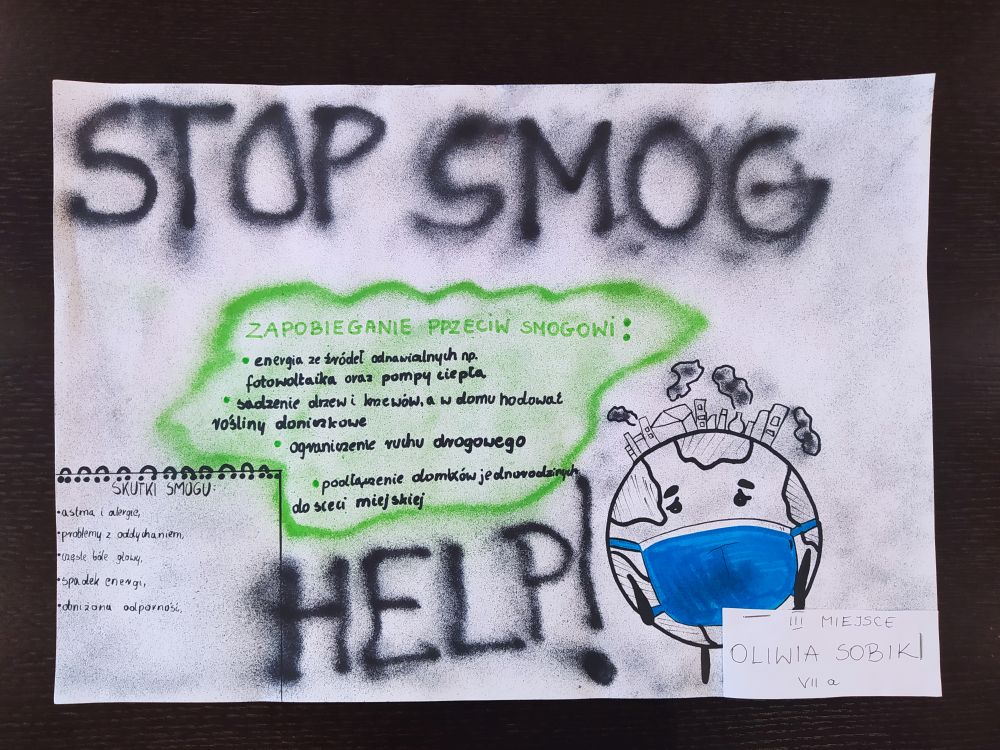 STOP SMOG
ZAPOBIEGANIE PPZECIW SMOGOWI:
• energia ze źródeł odnawialnych np.
fotowoltaika oraz pompy ciepła
• sadzenie drzew i krzewów, a w domu hodować
rośliny doniczkowe
• ograniczenie ruchu drogowego
• podłączenie domków jednorodzinych
do sieci miejskiej
SKUTKI SMOGU:
• astma i alergie,
• problemy z oddychaniem,
• częste bóle głowy,
• spadek energi,
• obniżona odporność,
HELP!
III MIEJSCE
OLIWIA SOBIK
VII a